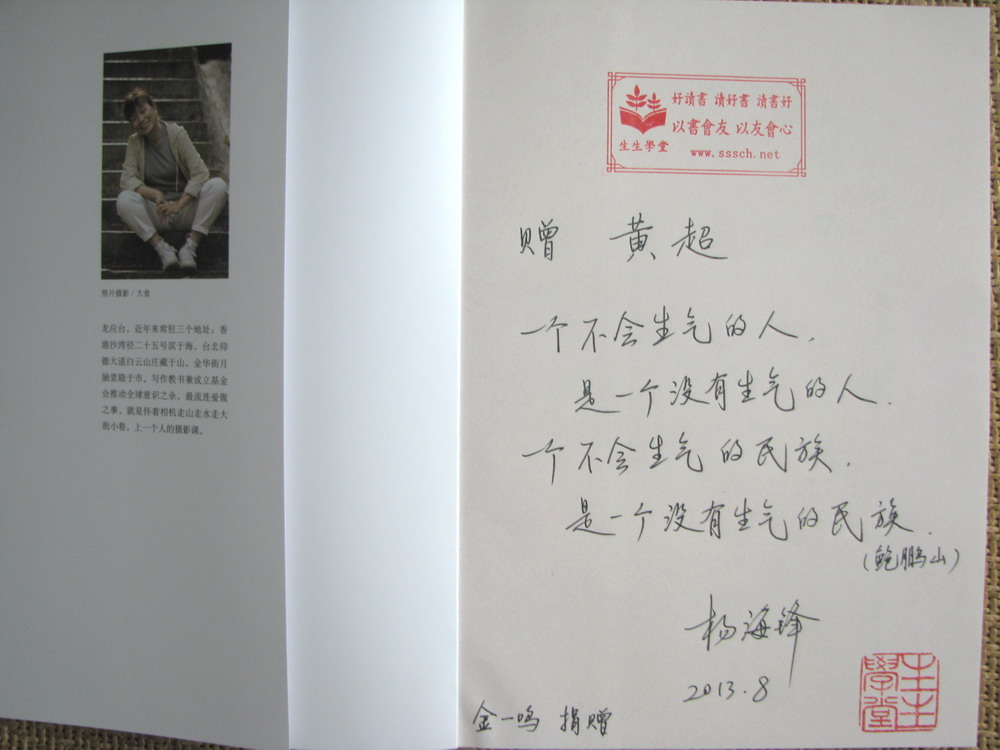 照片摄影/大食
龙应台，近年来常驻三个地址：香
港沙湾径二十五号滨于海，台北仰
德大道白云山庄藏于山，金华街月
涵堂隐于市。写作教书兼成立基金
会推动全球意识之余，最流连爱做
之事，就是怀着相机走山走水走大
街小巷，上一个人的摄影课。
好讀書 讀好書 讀書好
以書會友 以友會心
生生學堂
www.sssch.net
赠 黄超
一个不会生气的人，
是一个没有生气的人．
一个不会生气的民族，
是一个没有生气的民族．
（鲍鹏山）
杨海锋
2013.8
金一鸣 捐赠
生生學堂